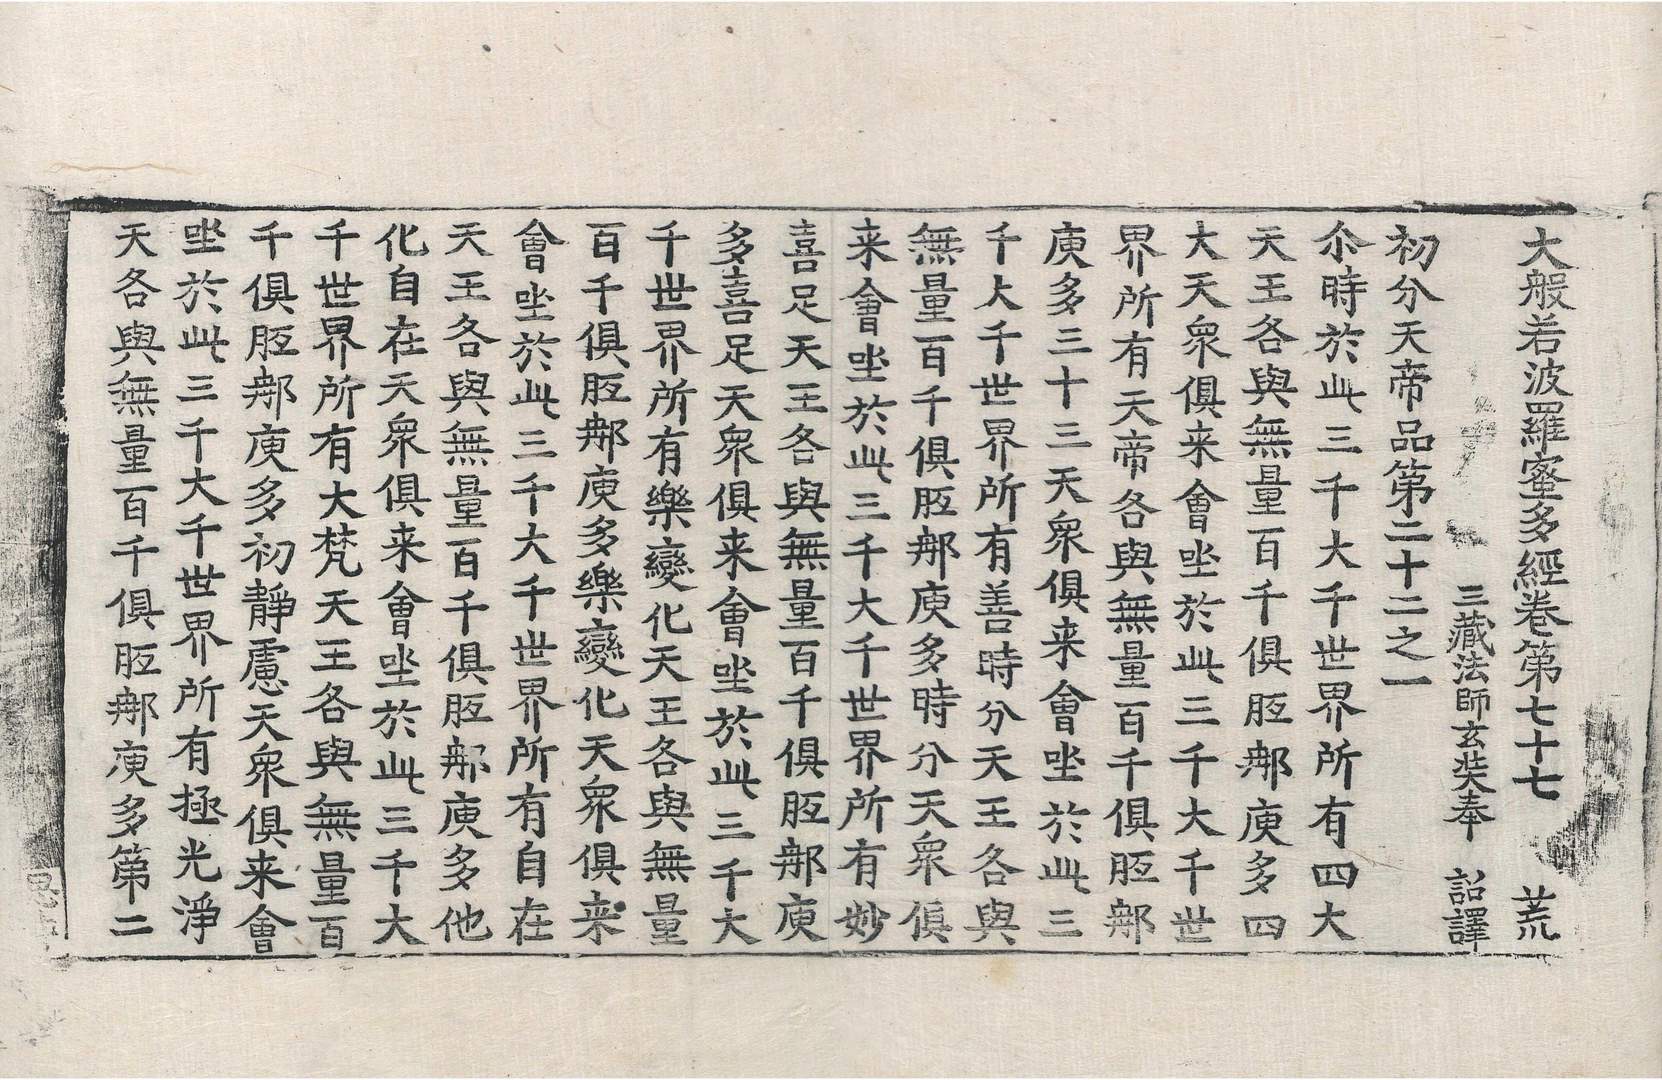 大般若波羅蜜多經卷第七十七 荒
三藏法師玄奘奉 詔譯
初分天帝品第二十二之一
尒時於此三千大千世界所有四大
天王各與無量百千俱胝那庾多四
大天衆俱来會坐於此三千大千世
界所有天帝各與無量百千俱胝那
庾多三十三天衆俱来會坐於此三
千大千世界所有善時分天王各與
無量百千俱胝那庾多時分天衆俱
来會坐於此三千大千世界所有妙
喜足天王各與無量百千俱胝那庾
多喜足天衆俱来會坐於此三千大
千世界所有樂變化天王各與無量
百千俱胝那庾多樂變化天衆俱来
會坐於此三千大千世界所有自在
天王各與無量百千俱胝那庾多他
化自在天衆俱来會坐於此三千大
千世界所有大梵天王各與無量百
千俱胝那庾多初靜慮天衆俱来會
坐於此三千大千世界所有極光淨
天各與無量百千俱胝那庾多第二